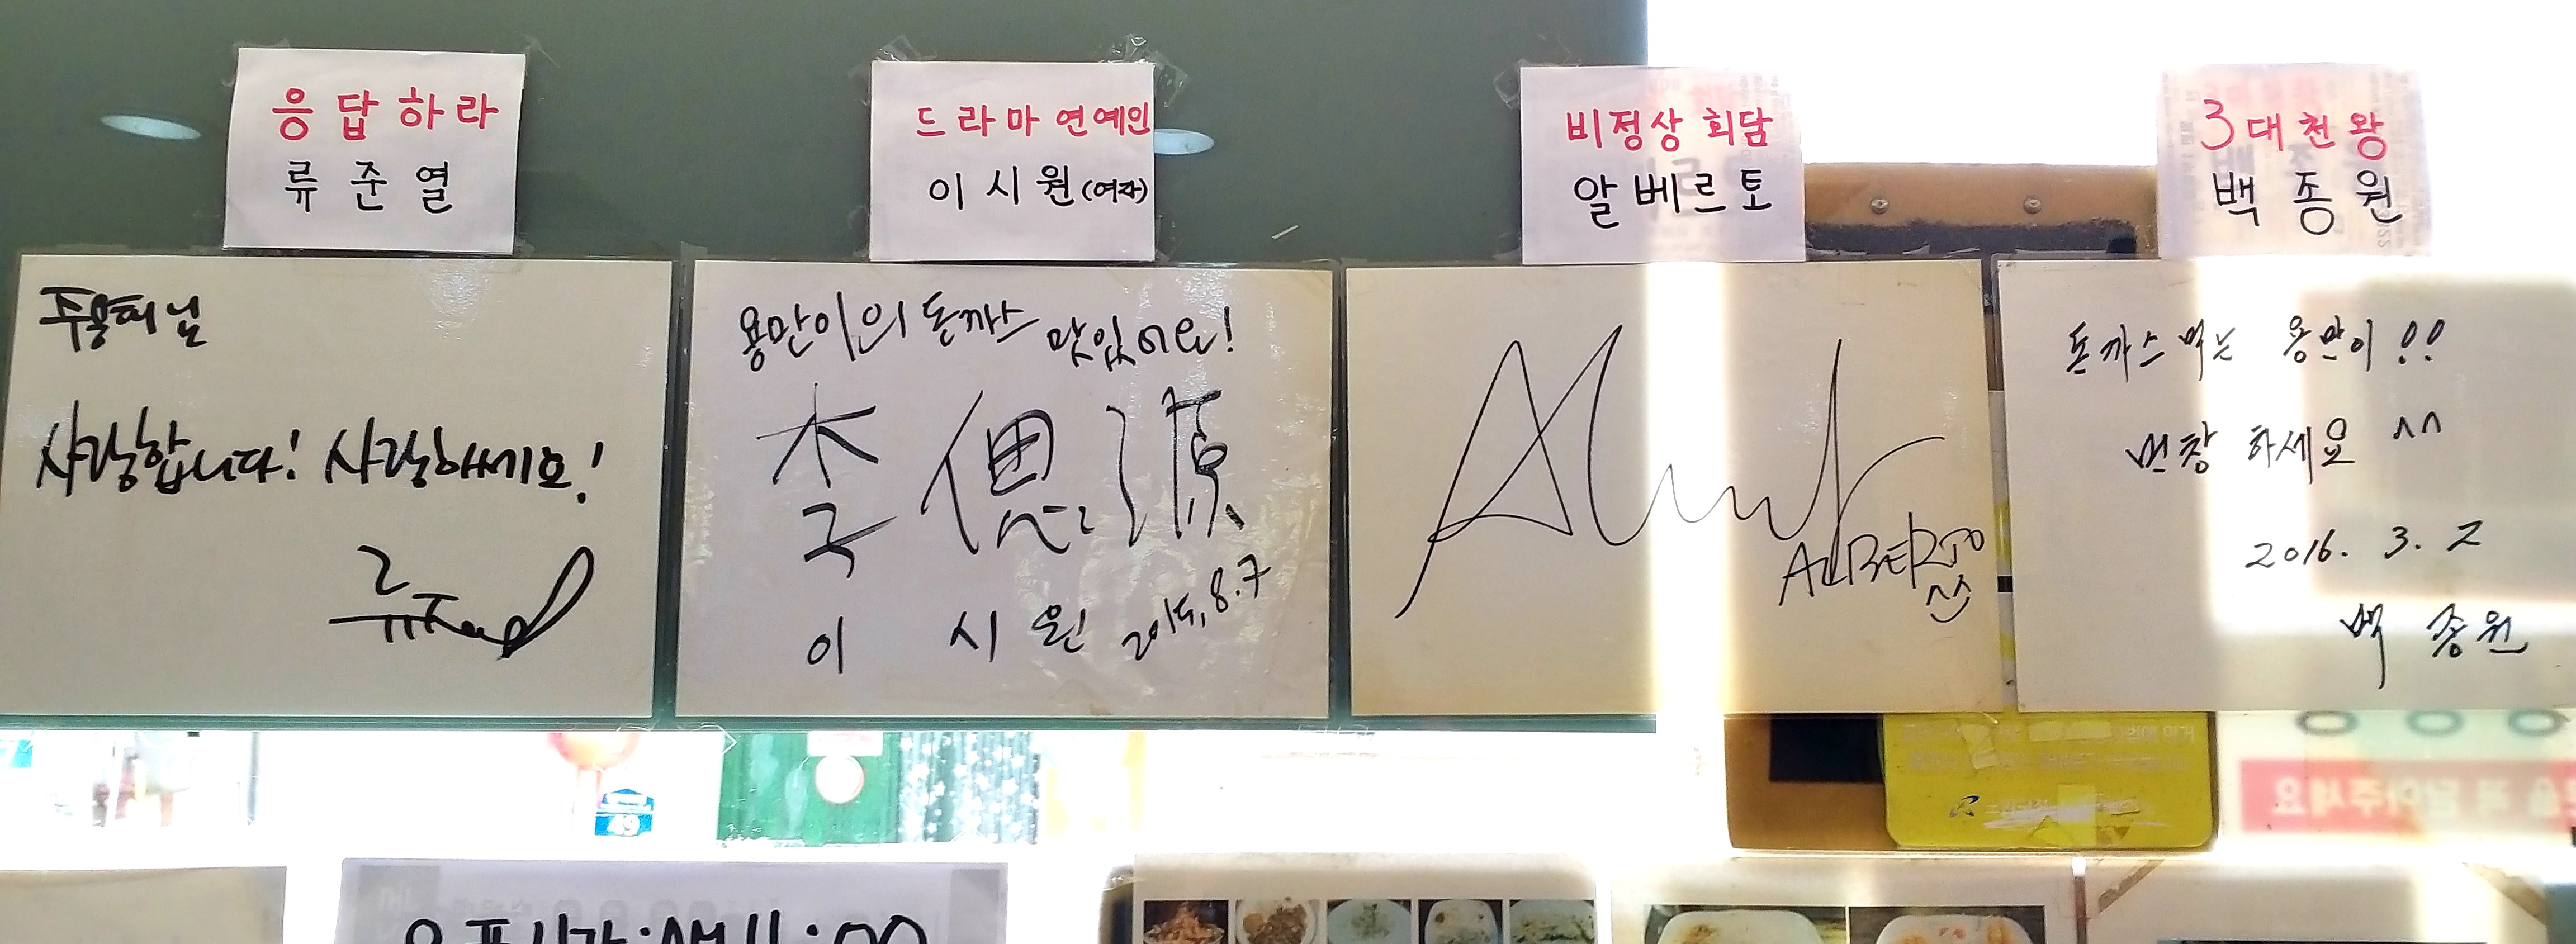 응답하라
류준열
드라마 연예인
이시원(여자)
비정상회담
알베르토
3대천왕
백종원
사랑합니다! 사랑하세요!
용만이의 돈까스 맛있어요!
李偲源
이시원 2015.8.7
ALBERTO
돈까스 먹는 용만이!!
번창 하세요 ^^
2016. 3. 2
백종원
49
오픈시간:AM11:00